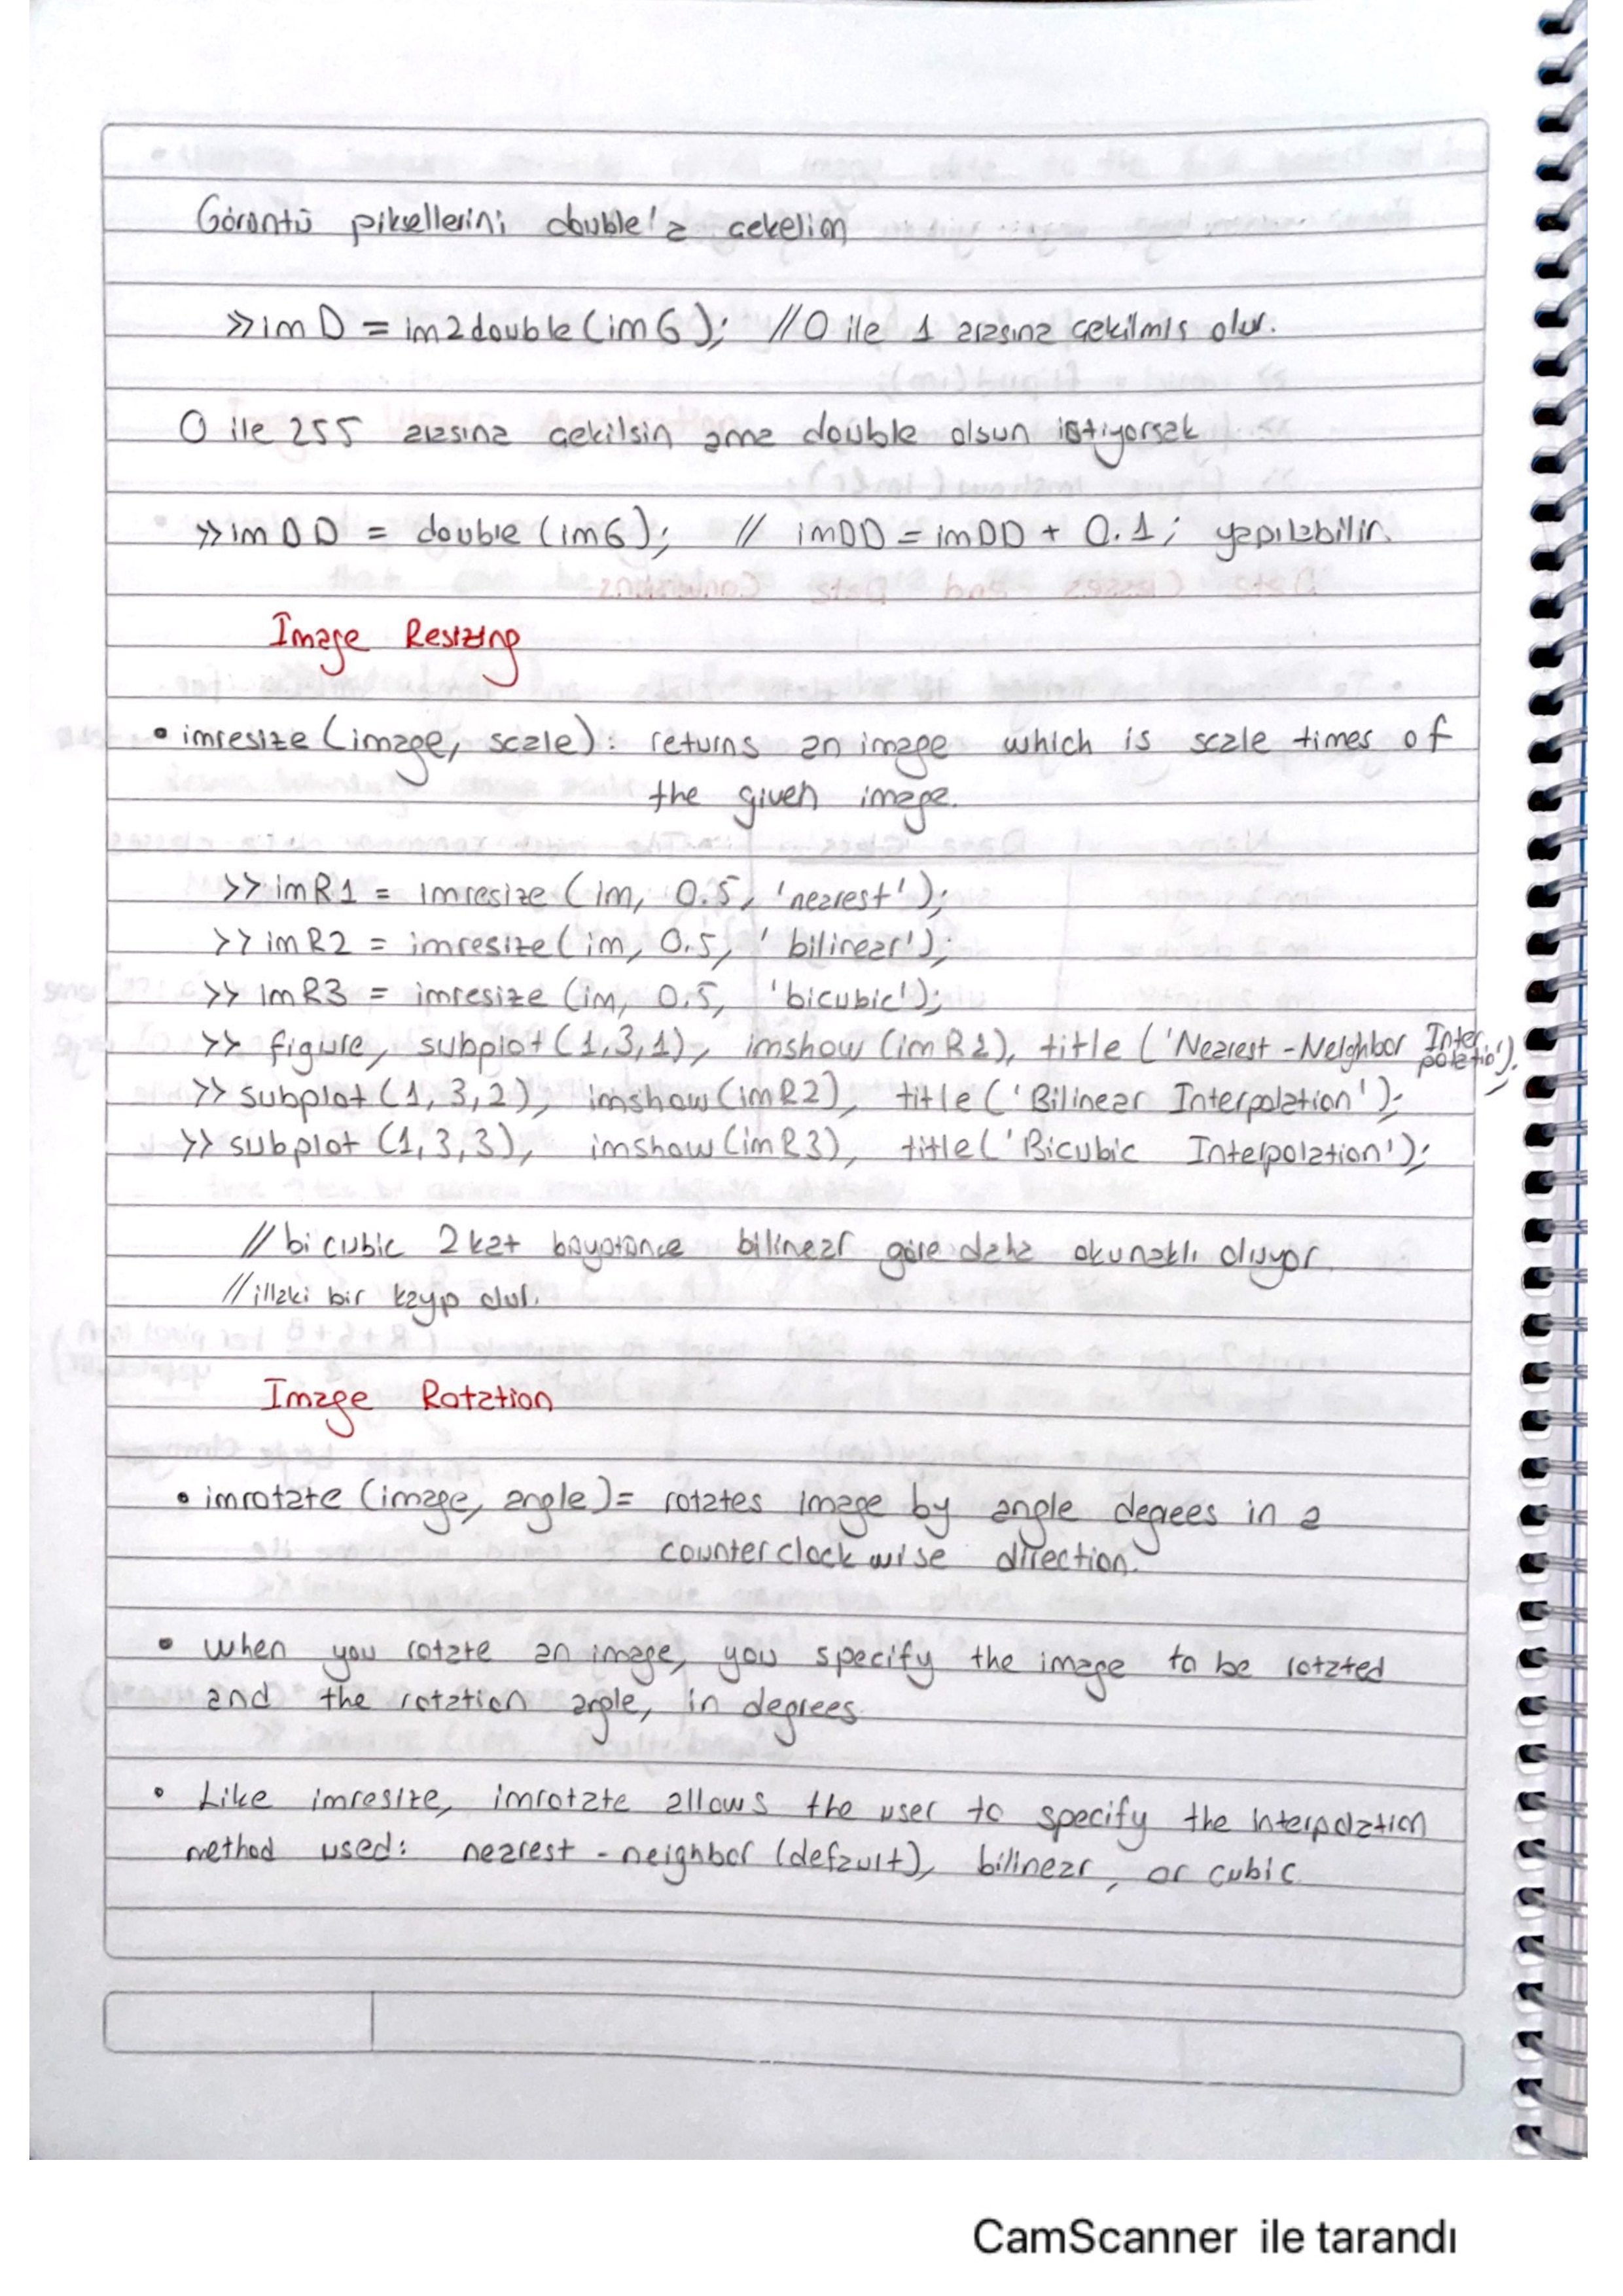 Görüntü piksellerini double'a çekelim
>> imD = im2double(imG); //0 ile 1 arasına çekilmiş olur.
0 ile 255 arasına çekilsin ama double olsun istiyorsak
>> imDD = double(imG); // imDD = imDD + 0.1; yapılabilir.
Image Resizing
• imresize(image, scale): returns an image which is scale times of
the given image.
>> imR1 = imresize(im, 0.5, 'nearest');
>> imR2 = imresize(im, 0.5, 'bilinear');
>> imR3 = imresize(im, 0.5, 'bicubic');
>> figure, subplot(1,3,1), imshow(imR1), title('Nearest-Neighbor Interpolatio');
>> subplot(1,3,2), imshow(imR2), title('Bilinear Interpolation');
>> subplot(1,3,3), imshow(imR3), title('Bicubic Interpolation');
// bicubic 2 kat bilinear göre daha okunaklı oluyor.
// illaki bir kayıp olur.
Image Rotation
• imrotate(image, angle)= rotates image by angle degrees in a
counterclockwise direction.
• When you rotate an image, you specify the image to be rotated
and the rotation angle, in degrees
• Like imresize, imrotate allows the user to specify the interpolation
method used: nearest-neighbor (default), bilinear, or cubic.
CamScanner ile tarandı